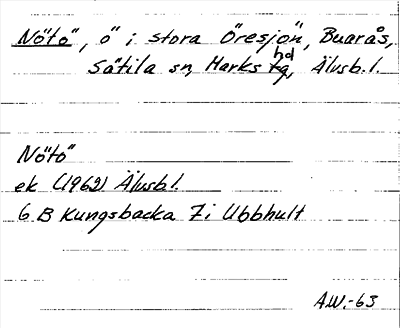 Nötö, ö i stora Öresjön, Buarås,
Sätila sn, Marks hd, Älvsb. l.
Nötö
ek (1962) Älvsb l.
6 B Kungsbacka 7 i Ubbhult
A.W.-63